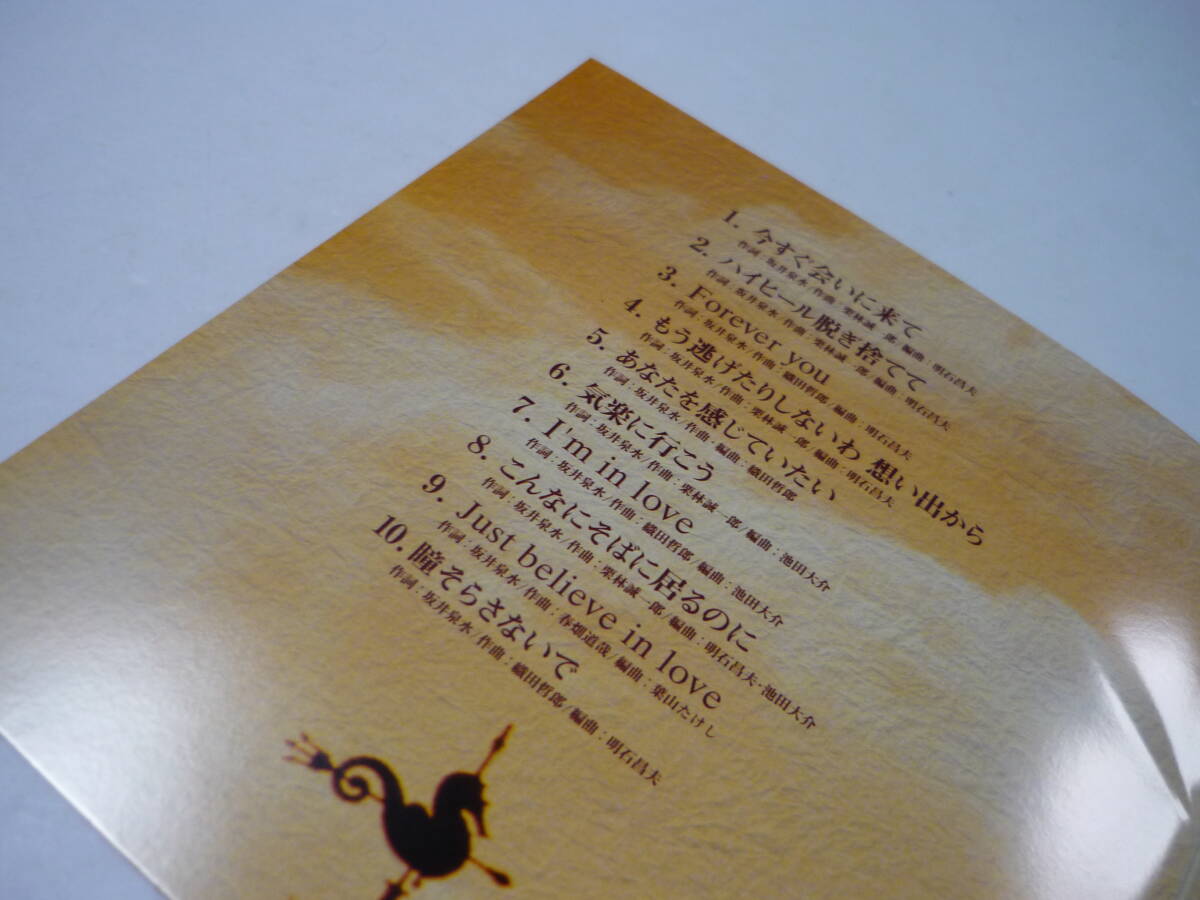 1. 今すぐ会いに来て
作詞：坂井泉水/作曲：栗林誠一郎/編曲：明石昌夫
2. ハイヒール脱ぎ捨てて
作詞：坂井泉水/作曲：栗林誠一郎/編曲：明石昌夫
3. Forever you
作詞：坂井泉水/作曲：織田哲郎/編曲：明石昌夫
4. もう逃げたりしないわ 想い出から
作詞：坂井泉水/作曲：栗林誠一郎/編曲：明石昌夫
5. あなたを感じていたい
作詞：坂井泉水/作曲・編曲：織田哲郎
6. 気楽に行こう
作詞：坂井泉水/作曲：栗林誠一郎/編曲：池田大介
7. I'm in love
作詞：坂井泉水/作曲：織田哲郎/編曲：池田大介
8. こんなにそばに居るのに
作詞：坂井泉水/作曲：栗林誠一郎/編曲：明石昌夫・池田大介
9. Just believe in love
作詞：坂井泉水/作曲：春畑道哉/編曲：葉山たけし
10. 瞳そらさないで
作詞：坂井泉水/作曲：織田哲郎/編曲：明石昌夫